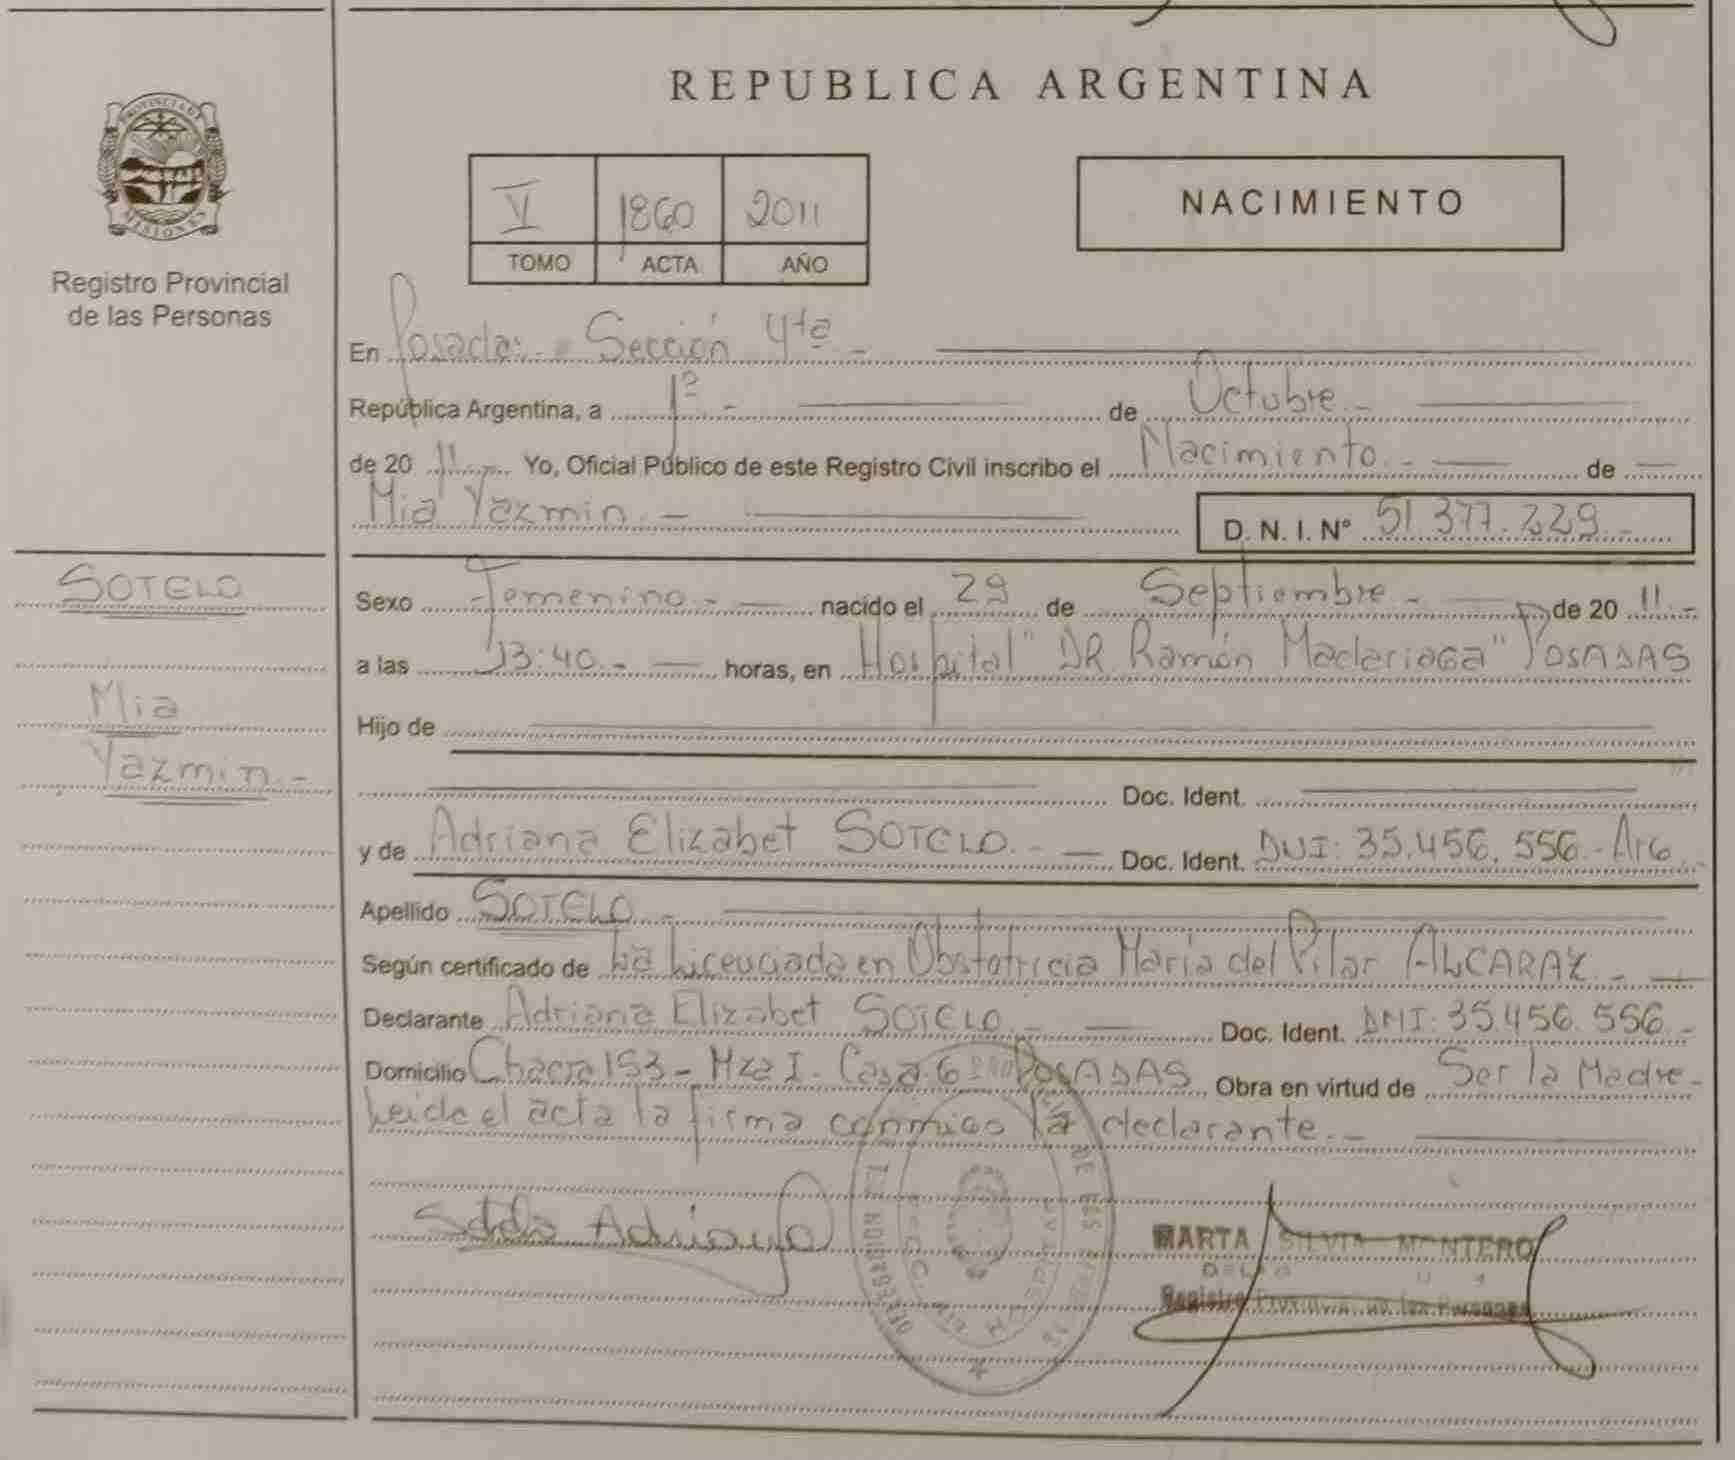 PROVINCIA DE
MISIONES
Registro Provincial
de las Personas
REPUBLICA ARGENTINA
V 1860 2011
TOMO ACTA AÑO
NACIMIENTO
En Posadas - Sección 4ta -
República Argentina, a 1º - de Octubre -
de 20 11 - Yo, Oficial Público de este Registro Civil inscribo el Nacimiento - de
Mia Yazmin - D. N. I. Nº 51.377.229 -
SOTELO
Mia
Yazmin.-
Sexo Femenino - nacido el 29 de Septiembre - de 20 11.-
a las 13:40.- horas, en Hospital "DR Ramón Madariaga" POSADAS
Hijo de
Doc. Ident.
y de Adriana Elizabet SOTELO.- Doc. Ident. DNI: 35.456.556.- Arg.
Apellido SOTELO -
Según certificado de La Licenciada en Obstetricia María del Pilar ALCARAZ -
Declarante Adriana Elizabet SOTELO - Doc. Ident. DNI: 35.456.556.-
Domicilio Chacra 153 - Mza I - Casa 6 POSADAS Obra en virtud de Ser la Madre -
Leida el acta la firma conmigo la declarante.-
Sotelo Adriana
MARTA SILVIA MONTERO
Registro Provincial de las Personas